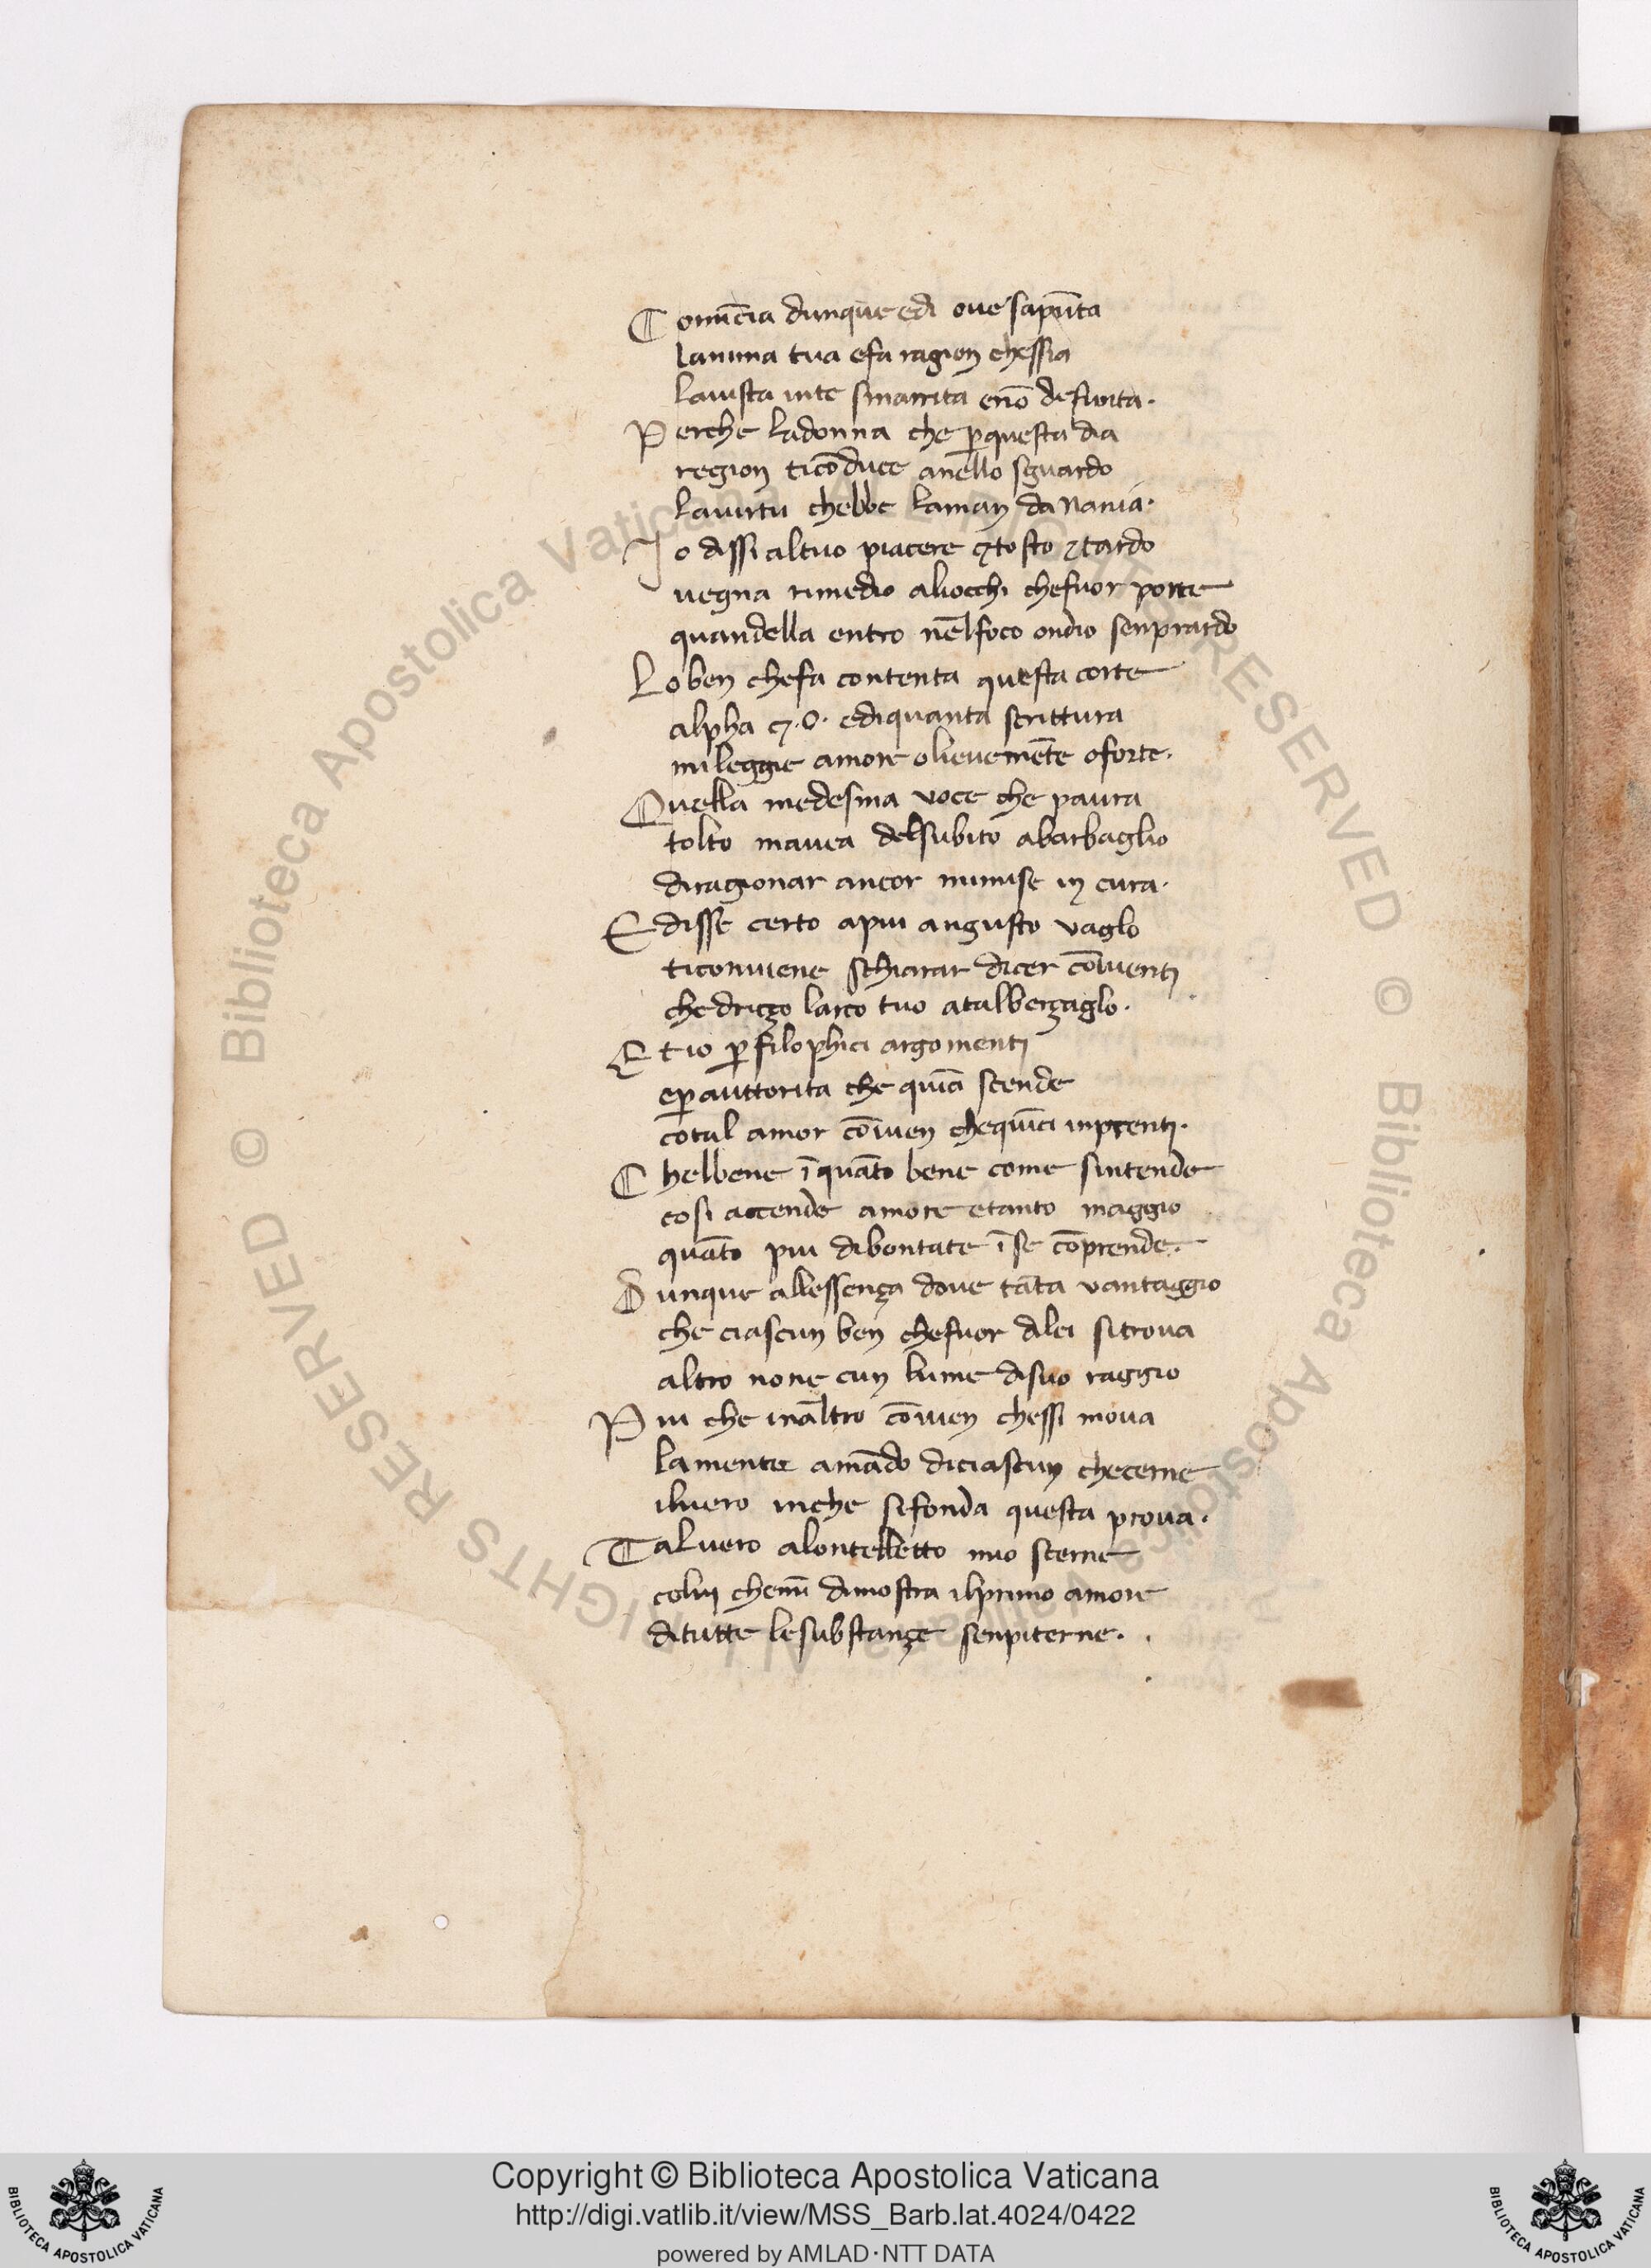 Comīcia dunque edi oue sapūta
lanima tua efa ragion chessia
lauista inte smarrita enō defunta.
Perche ladonna che ꝑquesta dia
region ticōduce anello sguardo
lauirtu chebbe laman da nania.
Io dissi altuo piacere ⁊tosto ⁊tardo
uegna rimedio aliocchi chefuor porte
quandella entro nēlfoco ondio senprardo
Loben chefa contenta questa corte
alpha ⁊.O. ediquanta scrittura
mileggie amore olieuemēte oforte.
Quella medesma voce che paura
tolto mauea delsubito abarbaglio
diragionar ancor mimise in cura.
Edisse certo apiu angusto vaglo
ticonuiene schiarar dicer cōuienti
chedriçço larco tuo atalberçaglo.
Etio ꝑ filophici argomenti
eꝑ auttorita che quīci scende
cotal amor cōuien chequīci inprenti.
Chelbene ī quāto bene come sintende
cosi accende amore etanto maggio
quāto piu dibontate ī se cōprende.
Dunque allessença doue tāta vantaggio
che ciascun ben chefuor dilei sitroua
altro none cun lume disuo raggio
Piu che inaltro cōuien chessi moua
lamente amādo diciascun checerne
iluero inche sifonda questa proua.
Taluero alontelletto mio scerne
colui chemī dimostra ilprimo amore
ditutte lesubstançe senpiterne.
© Biblioteca Apostolica Vaticana ALL RIGHTS RESERVED
© Biblioteca Apostolica Vaticana ALL RIGHTS RESERVED
Copyright © Biblioteca Apostolica Vaticana
http://digi.vatlib.it/view/MSS_Barb.lat.4024/0422
powered by AMLAD·NTT DATA
BIBLIOTECA APOSTOLICA VATICANA
BIBLIOTECA APOSTOLICA VATICANA